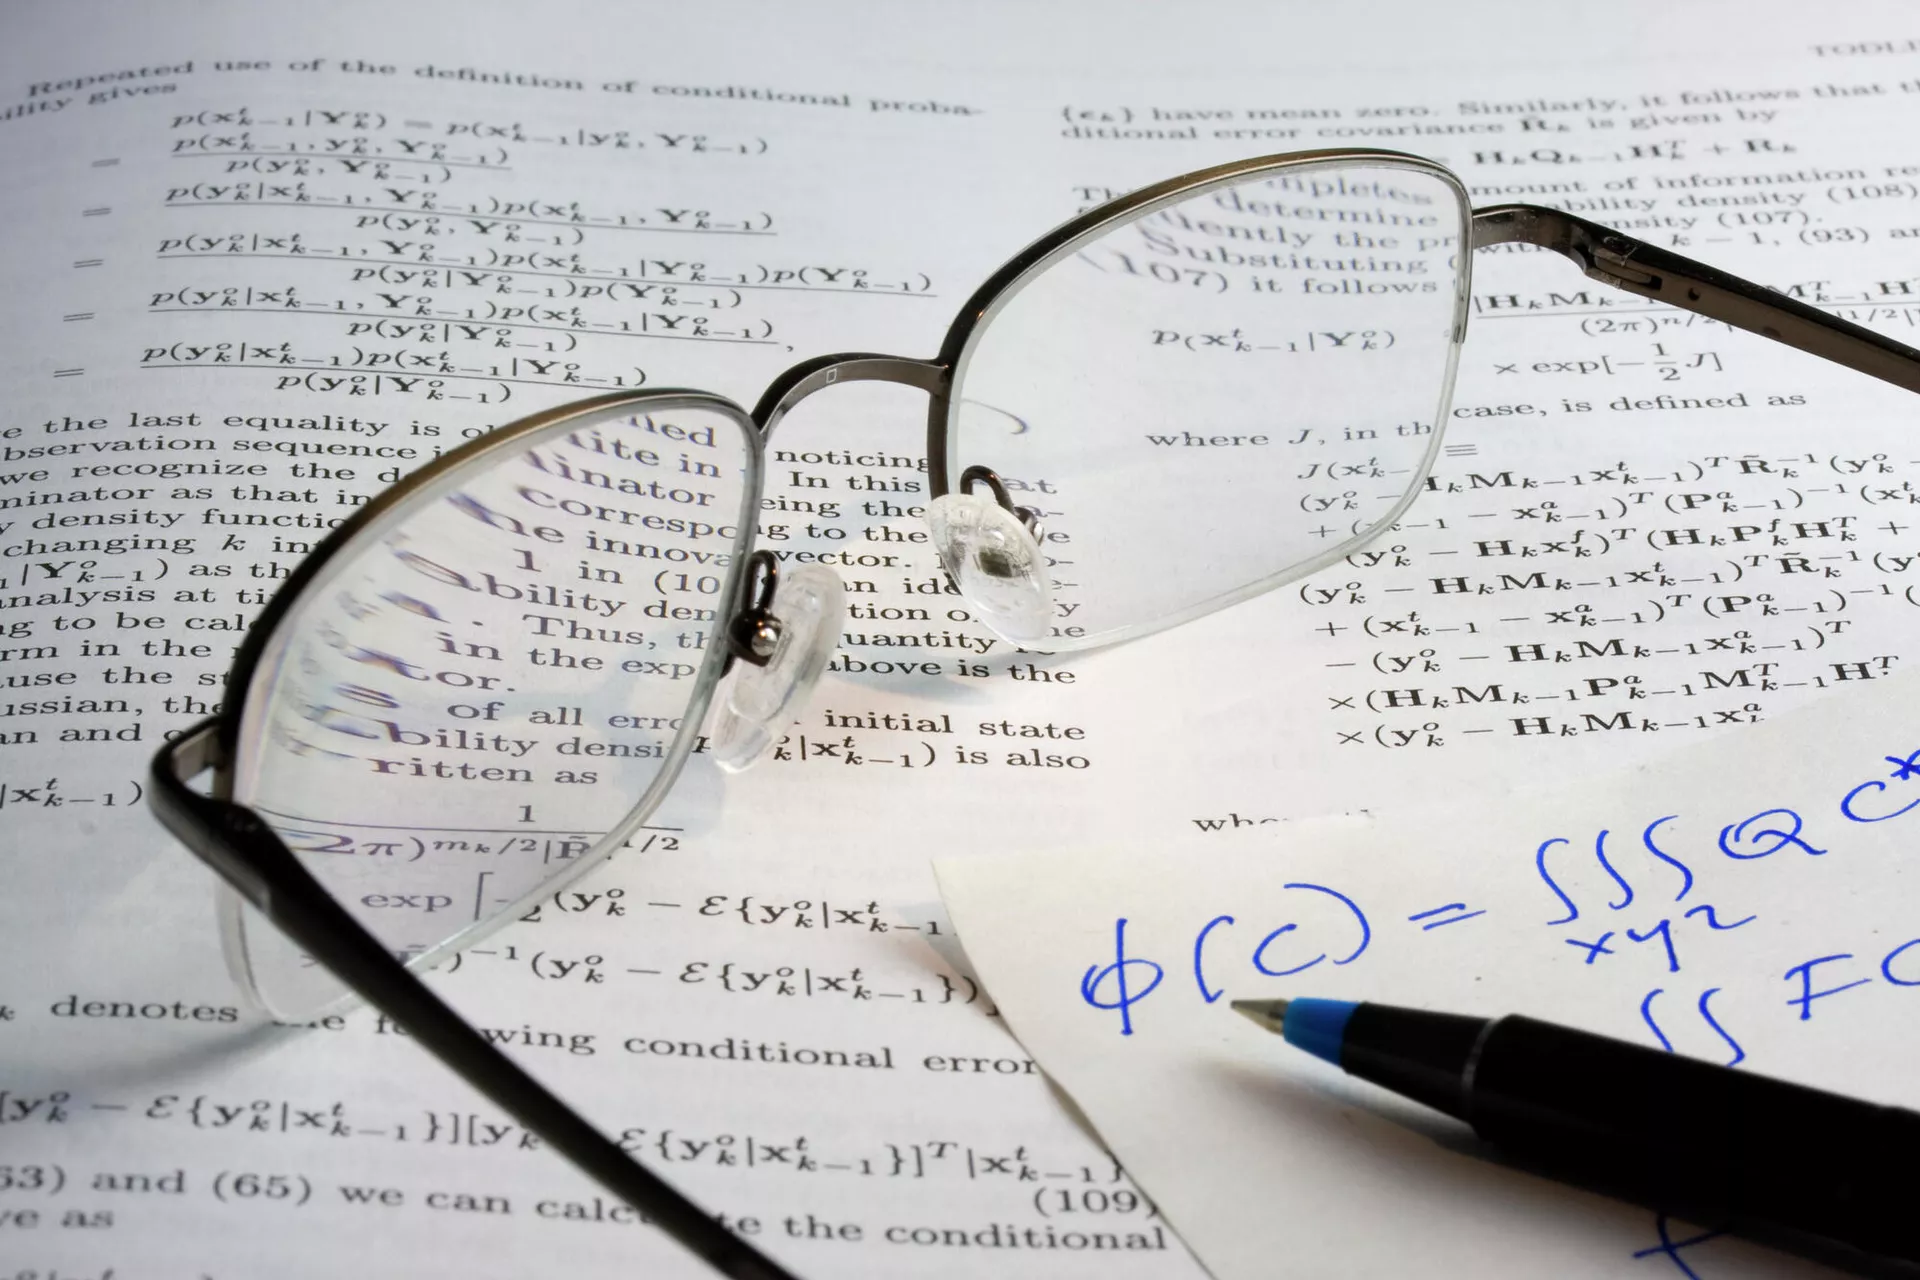 Repeated use of the definition of conditional proba-
ility gives
p(x^t_{k-1}|Y^o_k) = p(x^t_{k-1}|y^o_k, Y^o_{k-1})
= p(x^t_{k-1}, y^o_k, Y^o_{k-1}) / p(y^o_k, Y^o_{k-1})
= p(y^o_k|x^t_{k-1}, Y^o_{k-1})p(x^t_{k-1}, Y^o_{k-1}) / p(y^o_k, Y^o_{k-1})
= p(y^o_k|x^t_{k-1}, Y^o_{k-1})p(x^t_{k-1}|Y^o_{k-1})p(Y^o_{k-1}) / p(y^o_k|Y^o_{k-1})p(Y^o_{k-1})
= p(y^o_k|x^t_{k-1}, Y^o_{k-1})p(x^t_{k-1}|Y^o_{k-1}) / p(y^o_k|Y^o_{k-1}),
= p(y^o_k|x^t_{k-1})p(x^t_{k-1}|Y^o_{k-1}) / p(y^o_k|Y^o_{k-1})
e the last equality is noticing
bservation sequence In this
we recognize the
minator as that in correspond to the
y density functio innova vector.
changing k in 1 in (10 an ide
|Y^o_{k-1}) as th ability den tion o
analysis at ti Thus, th quantity
ng to be cal in the exp above is the
rm in the tor.
use the st of all erro initial state
ussian, the bility densi k|x^t_{k-1}) is also
an and ritten as
|x^t_{k-1})
1 / 2π)^{m_k/2}|R̃ ^{1/2}
exp [-1/2 (y^o_k − ℰ{y^o_k|x^t_{k-1}
)^{-1}(y^o_k − ℰ{y^o_k|x^t_{k-1}})
k denotes the following conditional error
[y^o_k − ℰ{y^o_k|x^t_{k-1}}][y^o_k ℰ{y^o_k|x^t_{k-1}}]^T|x^t_{k-1}}
(109)
63) and (65) we can calculate the conditional
ve as
TODLI
{ϵ_k} have mean zero. Similarly, it follows that th
ditional error covariance R̃_k is given by
= H_kQ_{k-1}H^T_k + R_k
mount of information re
determine ability density (108)
ently the pr ensity (107).
Substituting with k − 1, (93) an
(107) it follows
p(x^t_{k-1}|Y^o_k)
|H_kM_{k-1} M^T_{k-1}H^T
(2π)^{n/2} |^{1/2}|
× exp[−1/2 J]
where J, in th case, is defined as
J(x^t_{k-} ≡
(y^o_k − H_kM_{k-1}x^t_{k-1})^T R̃^{-1}_k (y^o_k −
+ (x^t_{k-1} − x^a_{k-1})^T (P^a_{k-1})^{-1} (x^t_k
(y^o_k − H_kx^f_k)^T (H_kP^f_kH^T_k +
(y^o_k − H_kM_{k-1}x^t_{k-1})^T R̃^{-1}_k (y
+ (x^t_{k-1} − x^a_{k-1})^T (P^a_{k-1})^{-1} (
− (y^o_k − H_kM_{k-1}x^a_{k-1})^T
×(H_kM_{k-1}P^a_{k-1}M^T_{k-1}H^T
×(y^o_k − H_kM_{k-1}x^a
ϕ(C) = ∫∫∫ Q C*
xyz
∫∫ FC